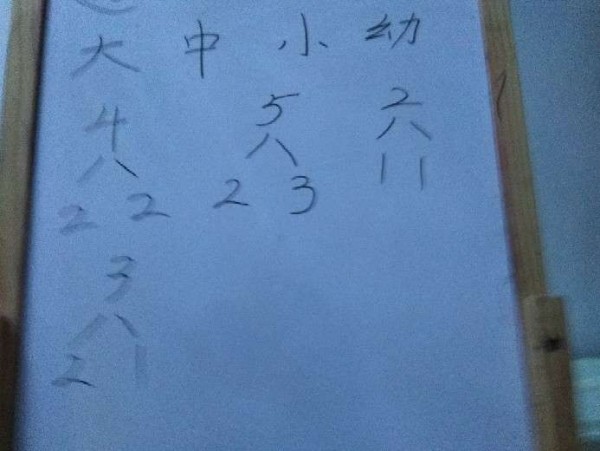 大 中 小 幼
4 5 2
2 2 2 3 1 1
3
2 1